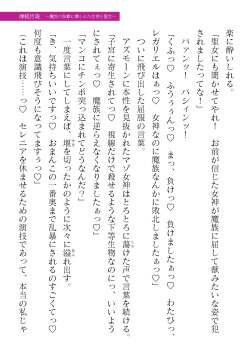 神核汚染
楽に酔いしれる。
「聖女にも聞かせてやれ！　お前が信じた女神が魔族に屈して獣みたいな姿で犯
されましたってな！」
パァンッ！　バシィンッ！
「くふっ♡　ふうぅぅんっ♡　まっ、負けっ♡　負けましたぁっ♡　わたひっ、
レガリエルはぁっ♡　女神なのに魔族なんかに敗北しましたぁっ♡」
ついに飛び出した屈服の言葉。
アズモーンに本性を見抜かれたマゾ女神はとろとろに蕩けた声で言葉を続ける。
「子宮に寄生されてっ♡　視線だけで殺せるような下等生物なのにっ、いいよう
にされてぇっ♡　魔族に逆らえなくなりましたぁっ♡」
「マンコにチンポ突っ込まれてどうなんだ？」
一度言葉にしてしまえば、堰を切ったかのように次々に溢れ出す。
「き、気持ちいいですっ♡　おまんこの一番奥まで乱暴にされるのすごくてっ♡
何度も意識飛びそうになってますぅっ♡」
（これは演技っ……！　セレニアを休ませるための演技であって、本当の私じゃ